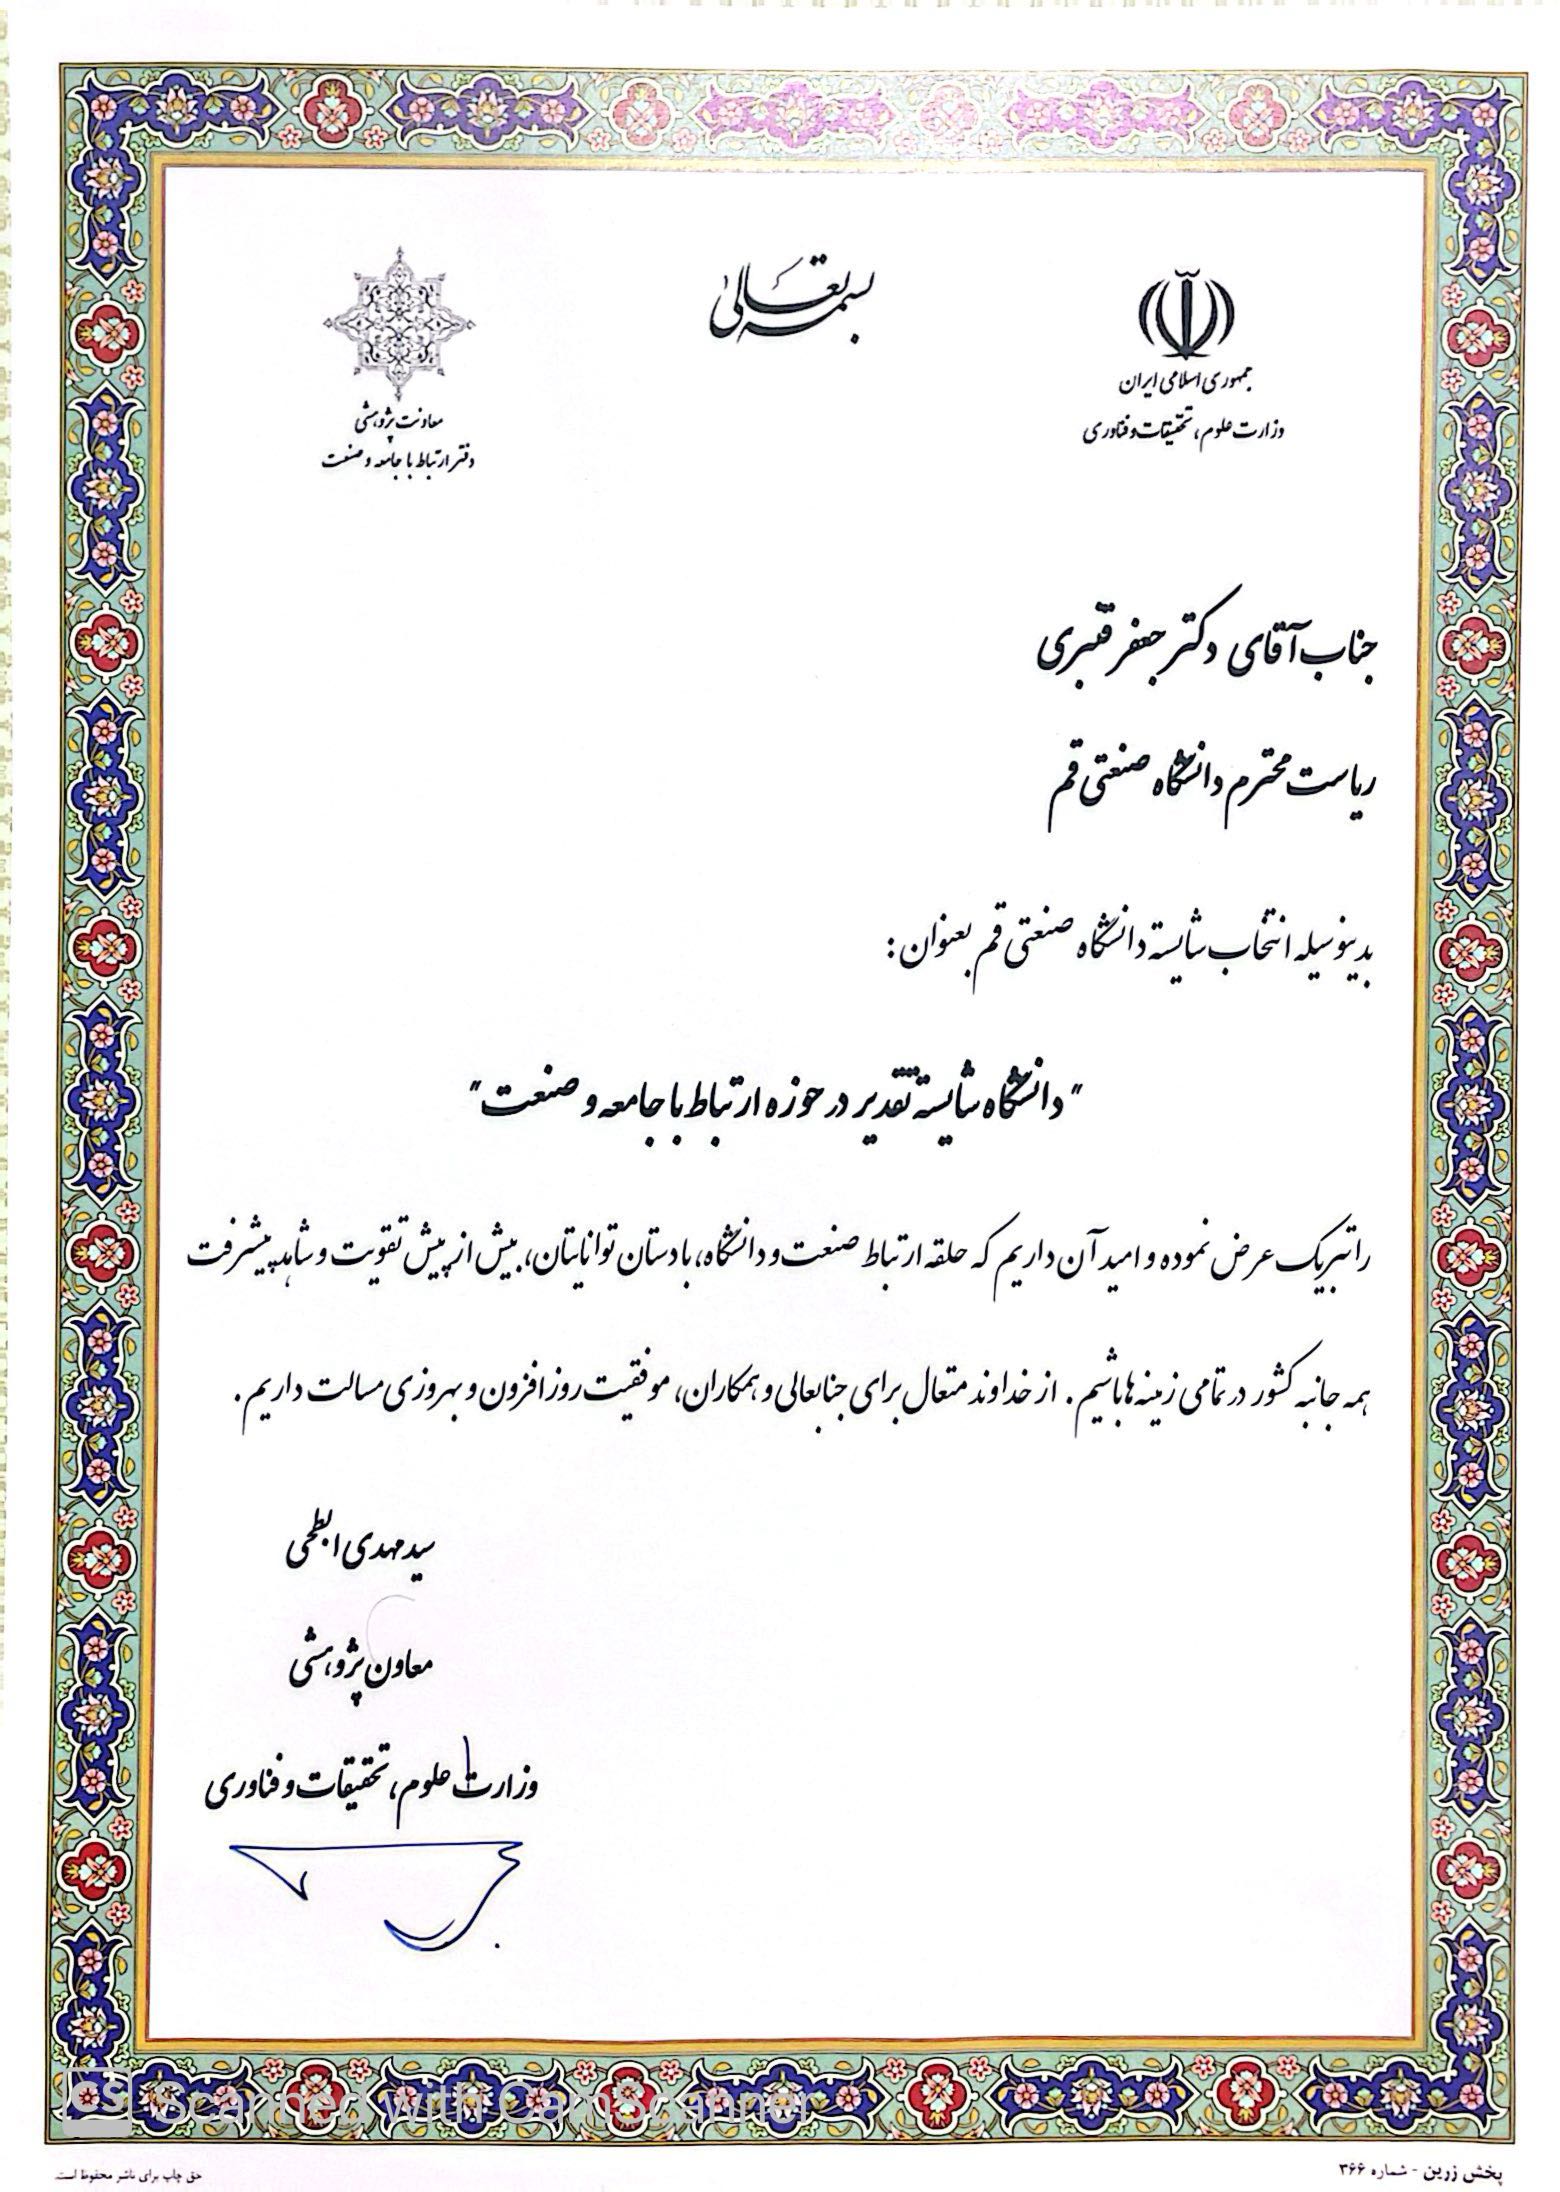 بسمه تعالی
جمهوری اسلامی ایران
وزارت علوم، تحقیقات و فناوری
معاونت پژوهشی
دفتر ارتباط با جامعه و صنعت
جناب آقای دکتر جعفر قنبری
ریاست محترم دانشگاه صنعتی قم
بدینوسیله انتخاب شایسته دانشگاه صنعتی قم بعنوان:
"دانشگاه شایسته تقدیر در حوزه ارتباط با جامعه و صنعت"
را تبریک عرض نموده و امید آن داریم که حلقه ارتباط صنعت و دانشگاه، با دستان توانایتان، بیش از پیش تقویت و شاهد پیشرفت
همه جانبه کشور در تمامی زمینه ها باشیم. از خداوند متعال برای جنابعالی و همکاران، موفقیت روز افزون و بهروزی مسالت داریم.
سید مهدی ابطحی
معاون پژوهشی
وزارت علوم، تحقیقات و فناوری
CS Scanned with CamScanner
پخش زرین - شماره ۳۶۶
حق چاپ برای ناشر محفوظ است.